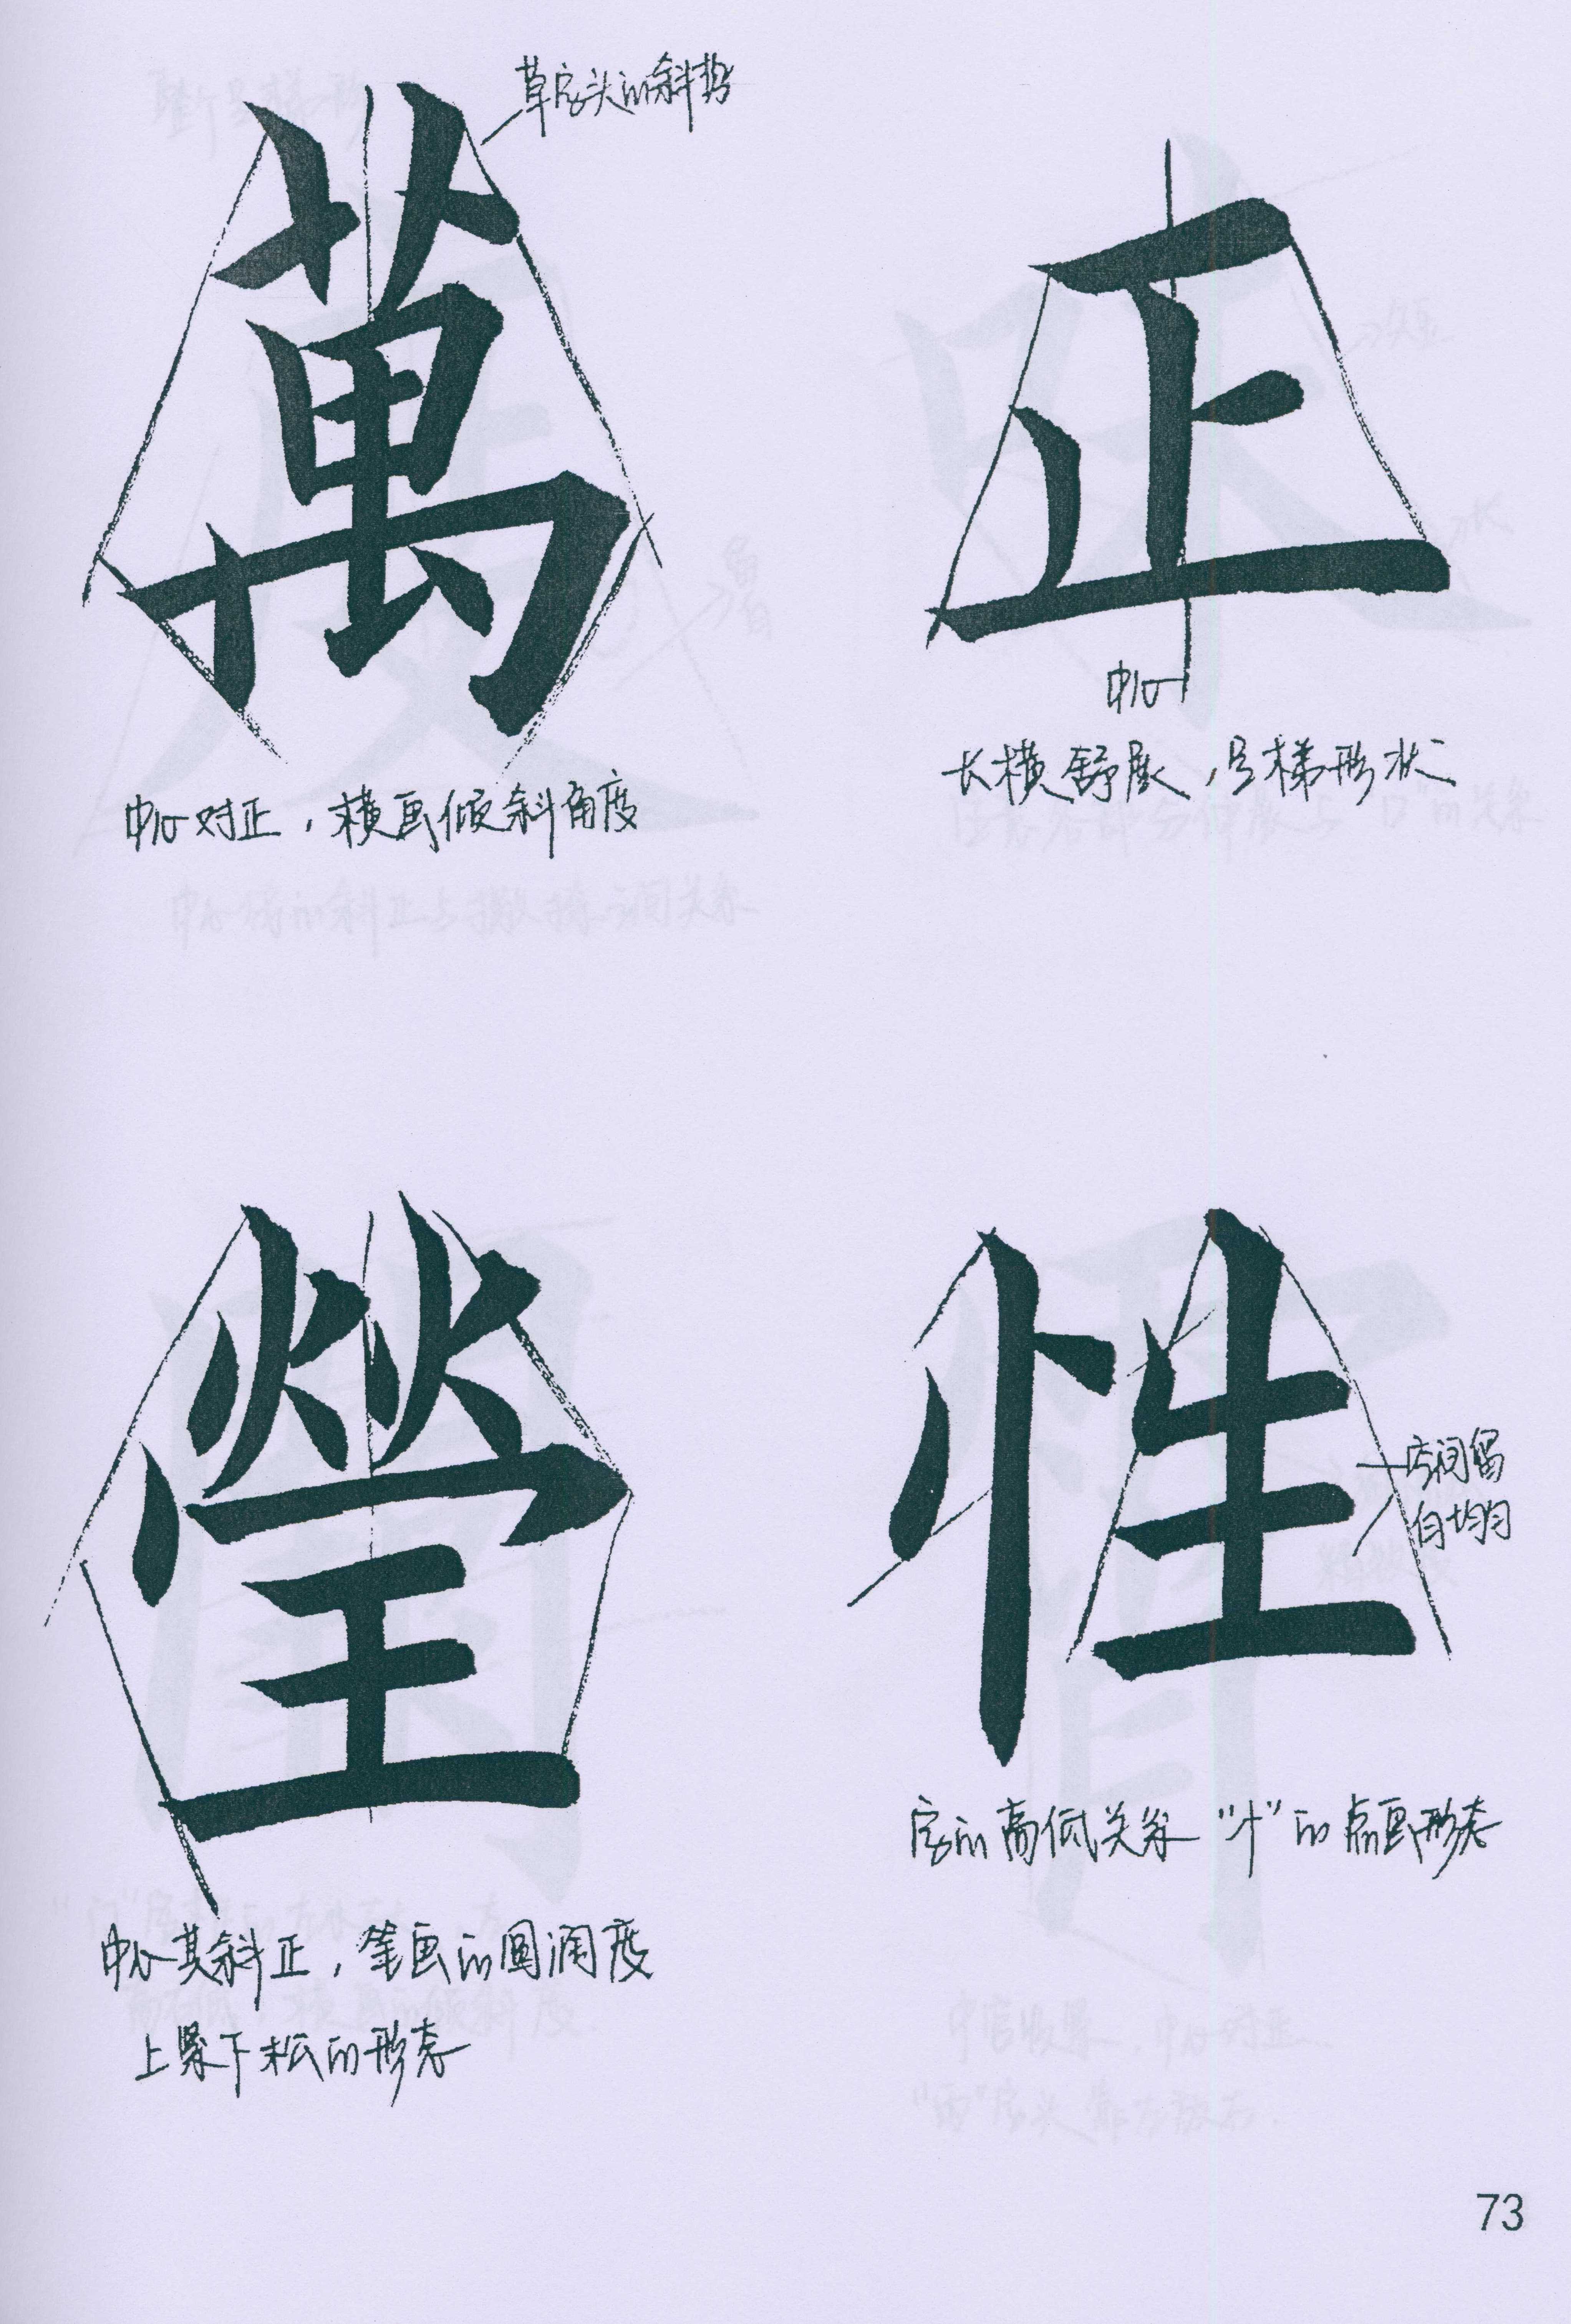 萬
草字头的斜势
中心对正，横画倾斜角度
正
中心
长横舒展，呈梯形状
瑩
中心其斜正，笔画的圆润度
上紧下松的形态
性
空间留
白均匀
字的高低关系“忄”的点画形态
73